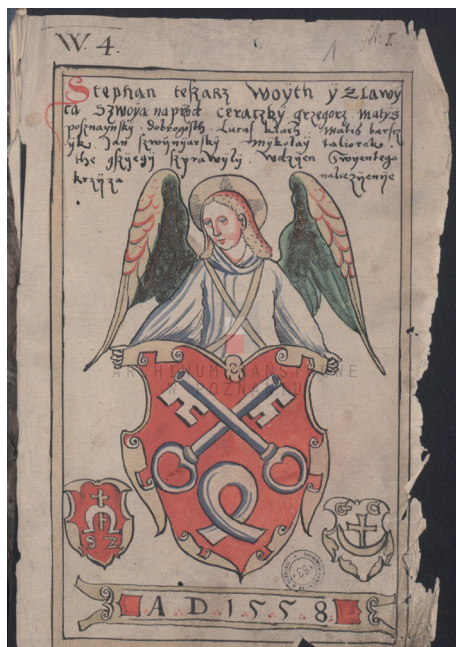 W. 4.
1
Stephan teszarz Woyth y z Lawy
ca Szwoya naprod ceraczky grzegorz matys
posznaynsky dobrogosth Lucas klach Matis barsz
yk Jan szwynyarsky Mykolay taliorek
the kxyegy Wdzyen Swyentego
krzyza nalezyenye
ARCHIWUM PAŃSTWOWE
W POZNANIU
S Z
G G
83
A D 1558